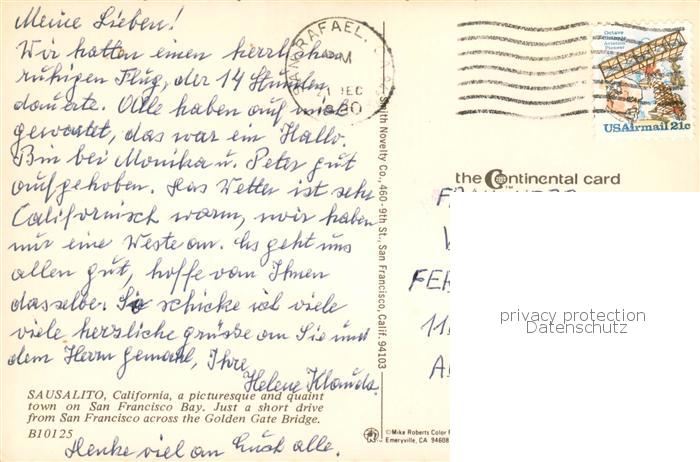 Meine Lieben!
Wir hatten einen herrlichen
ruhigen Flug, der 14 Stunden
dauerte. Alle haben auf mich
gewartet, das war ein Hallo.
Bin bei Monika u. Peter gut
aufgehoben. Das Wetter ist sehr
Californisch warm, wir haben
nur eine Weste an. Es geht uns
allen gut, hoffe von Ihnen
dasselbe. So schicke ich viele
viele herzliche grüsse an Sie und
dem Herrn Gemahl, Ihre
Helene Klauda.
SAUSALITO, California, a picturesque and quaint
town on San Francisco Bay. Just a short drive
from San Francisco across the Golden Gate Bridge.
B10125
Denke viel an Euch alle.
Smith Novelty Co., 460-9th St., San Francisco, Calif. 94103
RAFAEL,
21 DEC
Octave
Chanute
Aviation
Pioneer
USAirmail 21c
the Continental card
TM
FER
11
A
privacy protection
Datenschutz
©Mike Roberts Color
Emeryville, CA 94608